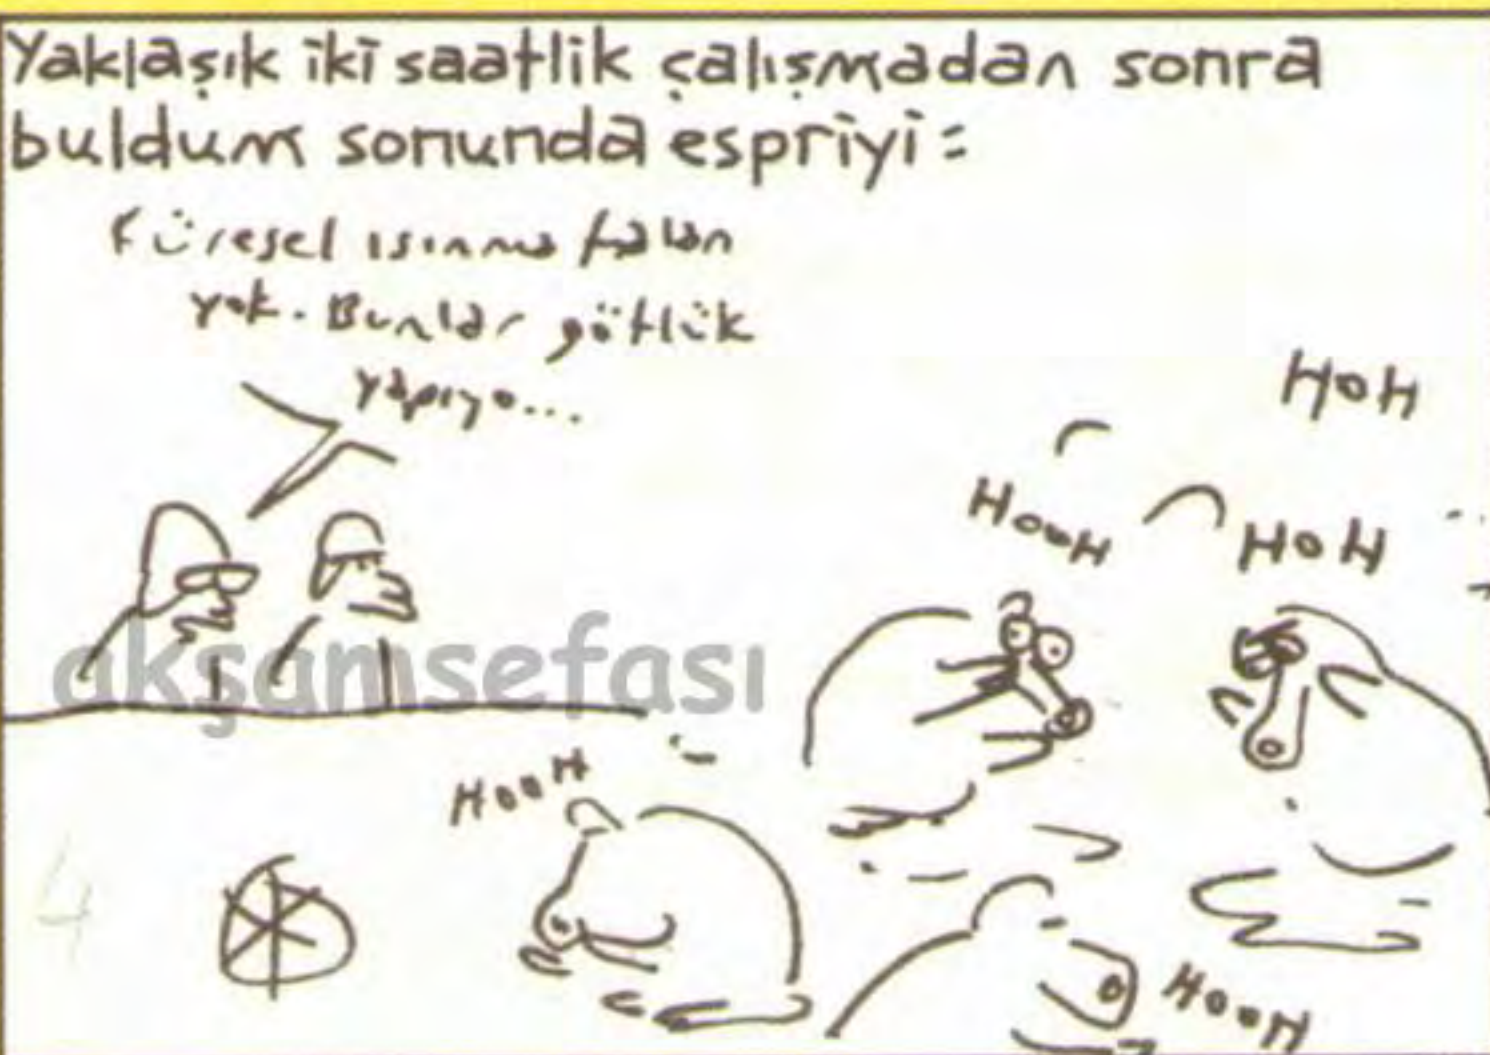 Yaklaşık iki saatlik çalışmadan sonra
buldum sonunda espriyi:
Küresel ısınma falan
yok. Bunlar götlük
yapıyo...
HOH
HOOH
HOH
akşamsefası
HOOH
HOOH